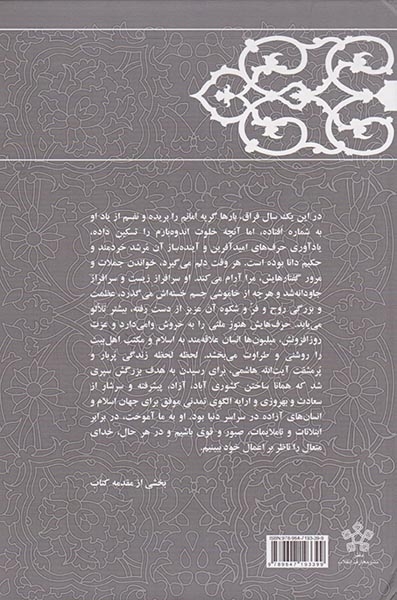 در این یک سال فراق، بارها گریه امانم را بریده و نفسم از یاد او
به شماره افتاده، اما آنچه خلوت اندوه‌بارم را تسکین داده،
یادآوری حرف‌های امیدآفرین و آینده‌ساز آن مُرشد خردمند و
حکیم دانا بوده است. هر وقت دلم می‌گیرد، خواندن جملات و
مرور گفتارهایش، مرا آرام می‌کند. او سرافراز زیست و سرافراز
جاودانه شد و هرچه از خاموشی جسم خسته‌اش می‌گذرد، عظمت
و بزرگی روح و فرّ و شکوه آن عزیز از دست رفته، بیشتر تلألو
می‌یابد. حرف‌هایش هنوز ملتی را به خروش وامی‌دارد و عزت
روزافزونش، میلیون‌ها انسان علاقه‌مند به اسلام و مکتب اهل‌بیت
را روشنی و طراوت می‌بخشد. لحظه لحظه زندگی پُربار و
پُرمشقت آیت‌الله هاشمی، برای رسیدن به هدف بزرگش سپری
شد که همانا ساختن کشوری آباد، آزاد، پیشرفته و سرشار از
سعادت و بهروزی و ارایه الگوی تمدنی موفق برای جهان اسلام و
انسان‌های آزاده در سراسر دنیا بود. او به ما آموخت، در برابر
ابتلائات و ناملایمات، صبور و قوی باشیم و در هر حال، خدای
متعال را ناظر بر اعمال خود ببینیم.
بخشی از مقدمه کتاب
ISBN 978-964-7193-39-9
9789647193399